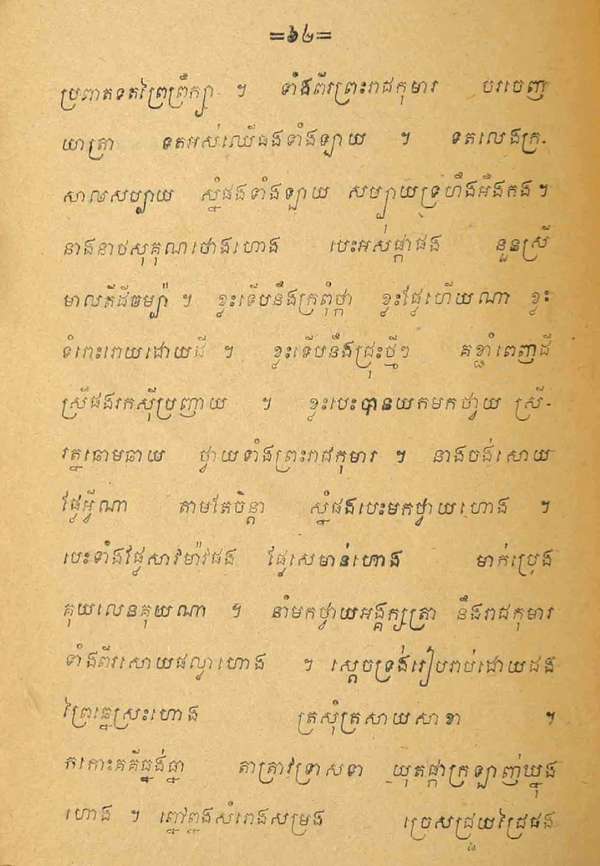 =៦៤=
ប្រពាតទតព្រៃព្រឹក្សា ។ ទាំងពីរព្រះរាជកុមារ បរចេញ
យាត្រា ទតអស់ឈើផងទាំងឡាយ ។ ទតលេងក្រ-
សាលសប្បាយ ស្នំផងទាំងឡាយ សប្បាយទ្រហឹងអឹងកង ។
នាងនាថសុគុណថោងហោង បេះអស់ផ្កាផង នួនស្រី
មាលតីដីចម្ប៉ា ។ ខ្លះទើបនឹងក្រពុំថ្កា ខ្លះផ្លែហើយណា ខ្លះ
ទំពោះរោយដោយដី ។ ខ្លះទើបនឹងជ្រុះថ្មីៗ គខ្ចាំពេញដី
ស្រីផងរកស៊ីប្រញាយ ។ ខ្លះបេះបានយកមកថ្វាយ ស្រី-
រត្នឆោមឆាយ ថ្វាយទាំងព្រះរាជកុមារ ។ នាងចង់សោយ
ផ្លែអ្វីណា តាមតែចិន្តា ស្នំផងបេះមកថ្វាយហោង ។
បេះទាំងផ្លែសាវម៉ាវផង ផ្លែសេមាន់ហោង មាក់ប្រេង
គុយលេនគុយណា ។ នាំមកថ្វាយអង្គក្សត្រា នឹងរាជកុមារ
ទាំងពីរសោយផលូវហោង ។ ស្ដេចទ្រង់រៀបរាប់ដោយដង
ព្រៃធ្នេស្រះហោង ត្រសុំត្រសាយសាខា ។
កកោះគគីធ្នង់ធ្នា តាត្រាវទ្រាសទា យុគផ្កាក្រឡាញ់ឃ្នុង
ហោង ។ ភ្លៅភ្លុងសំរោងសម្រង ច្រេសជ្រួយជ្រៃផង